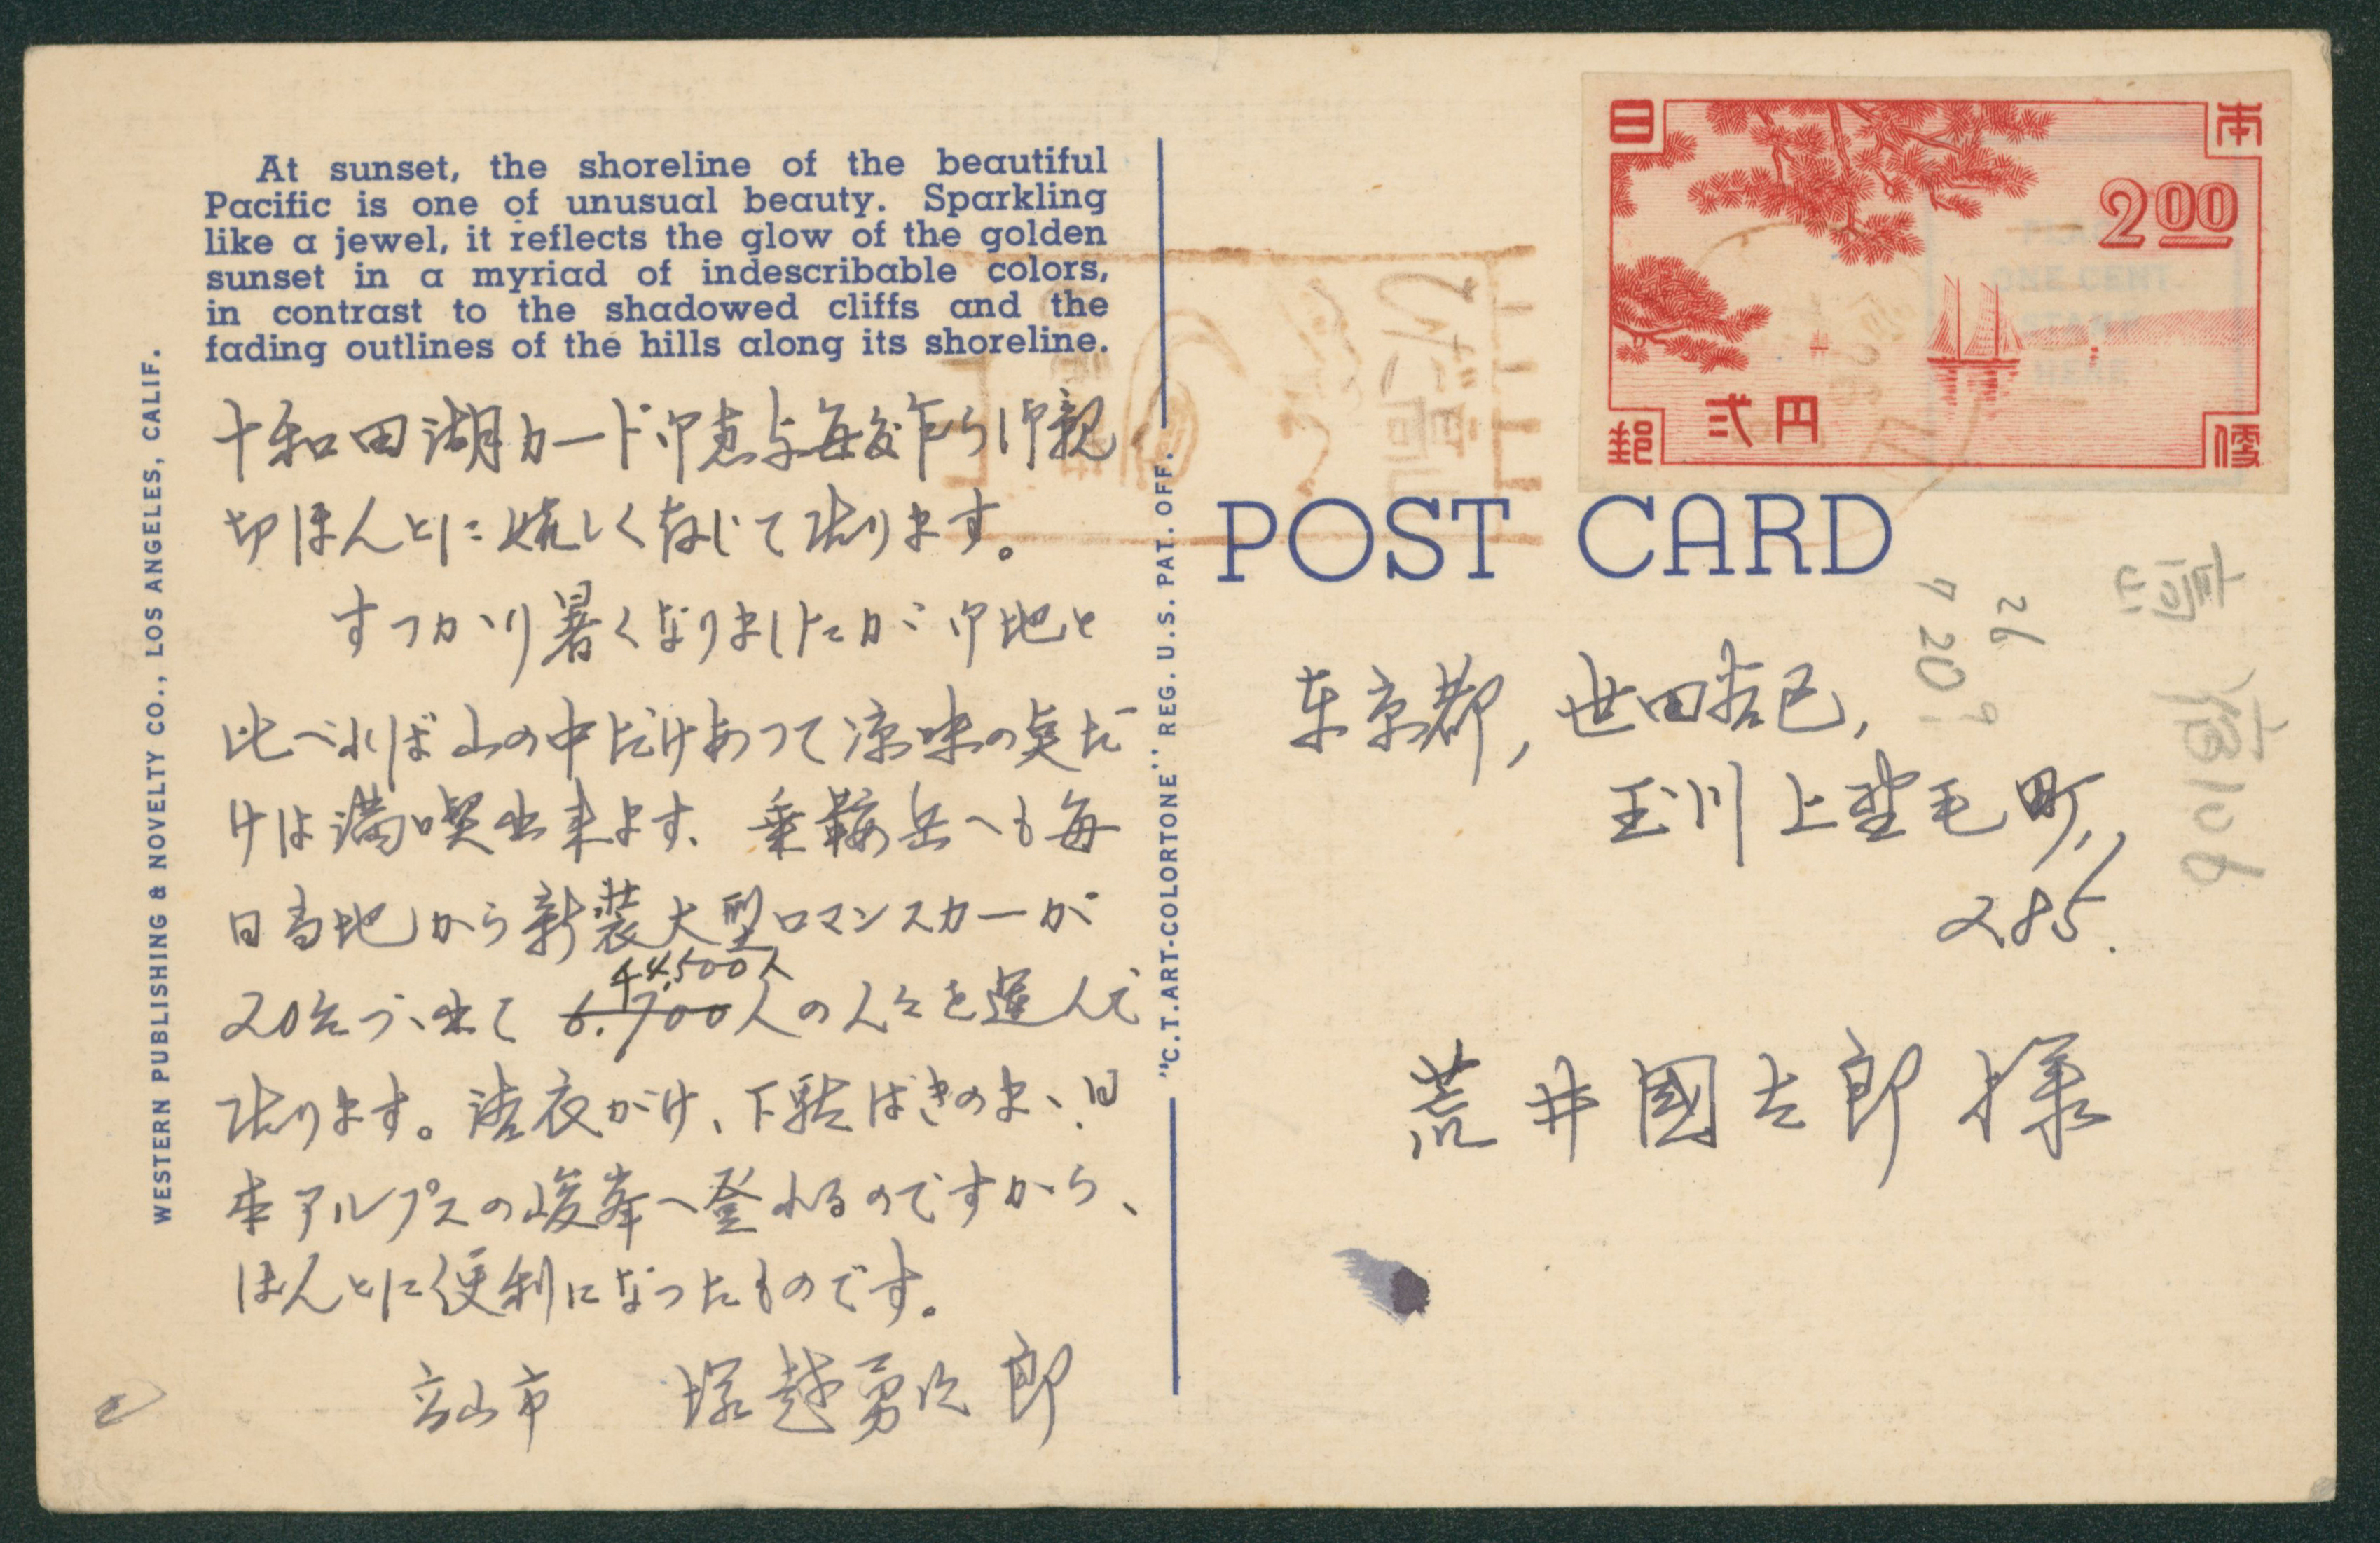 At sunset, the shoreline of the beautiful
Pacific is one of unusual beauty. Sparkling
like a jewel, it reflects the glow of the golden
sunset in a myriad of indescribable colors,
in contrast to the shadowed cliffs and the
fading outlines of the hills along its shoreline.
十和田湖カード御恵与毎度乍ら御親
切ほんとに嬉しく存じて居ります。
すつかり暑くなりましたが御地と
比べれば山の中だけあつて涼味の点だ
けは満喫出来ます、乗鞍岳へも毎
日当地から新装大型ロマンスカーが
4,500人
20台づゝ出て 6.700人の人々を運んで
居ります。浴衣がけ、下駄ばきのまゝ日
本アルプスの峻峯へ登れるのですから、
ほんとに便利になったものです。
高山市 塚越勇次郎
WESTERN PUBLISHING & NOVELTY CO., LOS ANGELES, CALIF.
"C.T.ART-COLORTONE" REG. U.S. PAT. OFF.
日本
200
弐円
郵便
PLACE
ONE CENT
STAMP
HERE
POST CARD
東京都, 世田谷区,
玉川上野毛町,
285.
荒井國太郎様
26
7 20